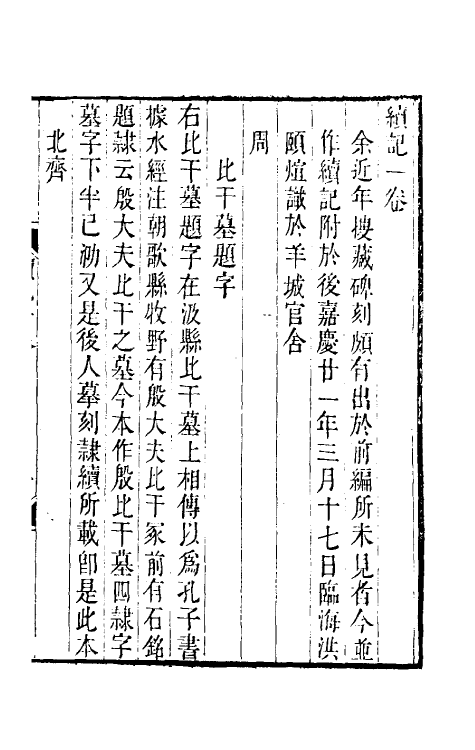 續記一卷
余近年搜藏碑刻頗有出於前編所未見者今並
作續記附於後嘉慶廿一年三月十七日臨海洪
頤煊識於羊城官舍
周
比干墓題字
右比干墓題字在汲縣比干墓上相傳以爲孔子書
據水經注朝歌縣牧野有殷大夫比干冢前有石銘
題隸云殷大夫比干之墓今本作殷比干墓四隸字
墓字下半已泐又是後人摹刻隸續所載卽是此本
北齊